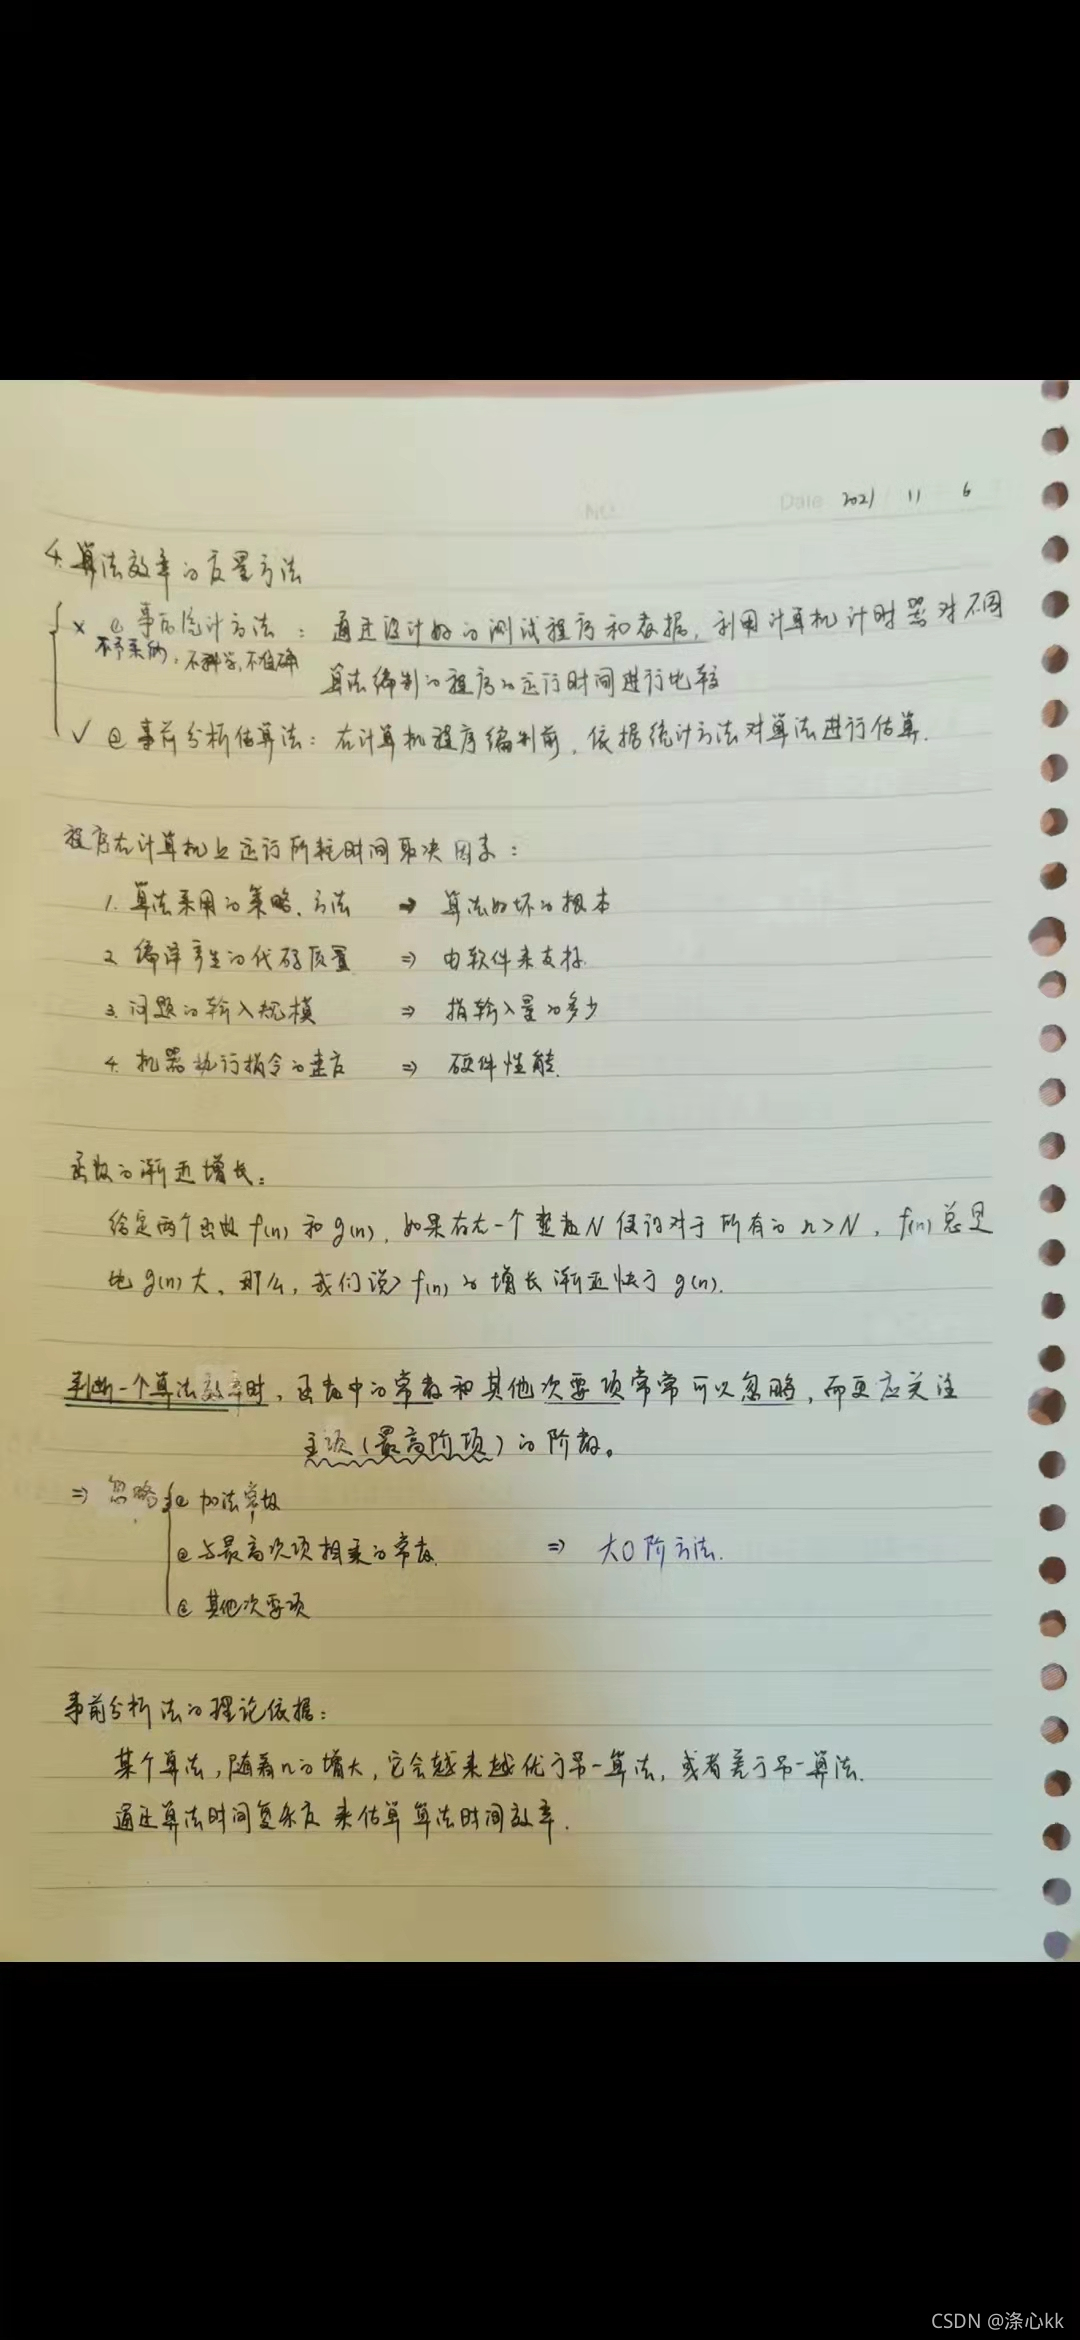 Date 2021 11 6
4.算法效率的度量方法
× ① 事后统计方法：通过设计好的测试程序和数据，利用计算机计时器对不同
不予采纳，不科学,不准确
算法编制的程序的运行时间进行比较
✓ ② 事前分析估算法：在计算机程序编制前，依据统计方法对算法进行估算.
程序在计算机上运行所耗时间取决因素：
1. 算法采用的策略、方法 ⇒ 算法好坏的根本
2. 编译产生的代码质量 ⇒ 由软件来支持.
3. 问题的输入规模 ⇒ 指输入量的多少
4. 机器执行指令的速度 ⇒ 硬件性能.
函数的渐近增长：
给定两个函数 f(n) 和 g(n)，如果存在一个整数N 使得对于所有的 n>N，f(n)总是
比 g(n)大，那么，我们说 f(n) 的增长渐近快于 g(n).
判断一个算法效率时，函数中的常数和其他次要项常常可以忽略，而更应关注
主项(最高阶项)的阶数。
⇒ 忽略 ① 加法常数
② 与最高次项相乘的常数. ⇒ 大O阶方法.
③ 其他次要项
事前分析法的理论依据：
某个算法，随着n的增大，它会越来越优于另一算法，或者差于另一算法.
通过算法时间复杂度来估算算法时间效率.
CSDN @涤心kk